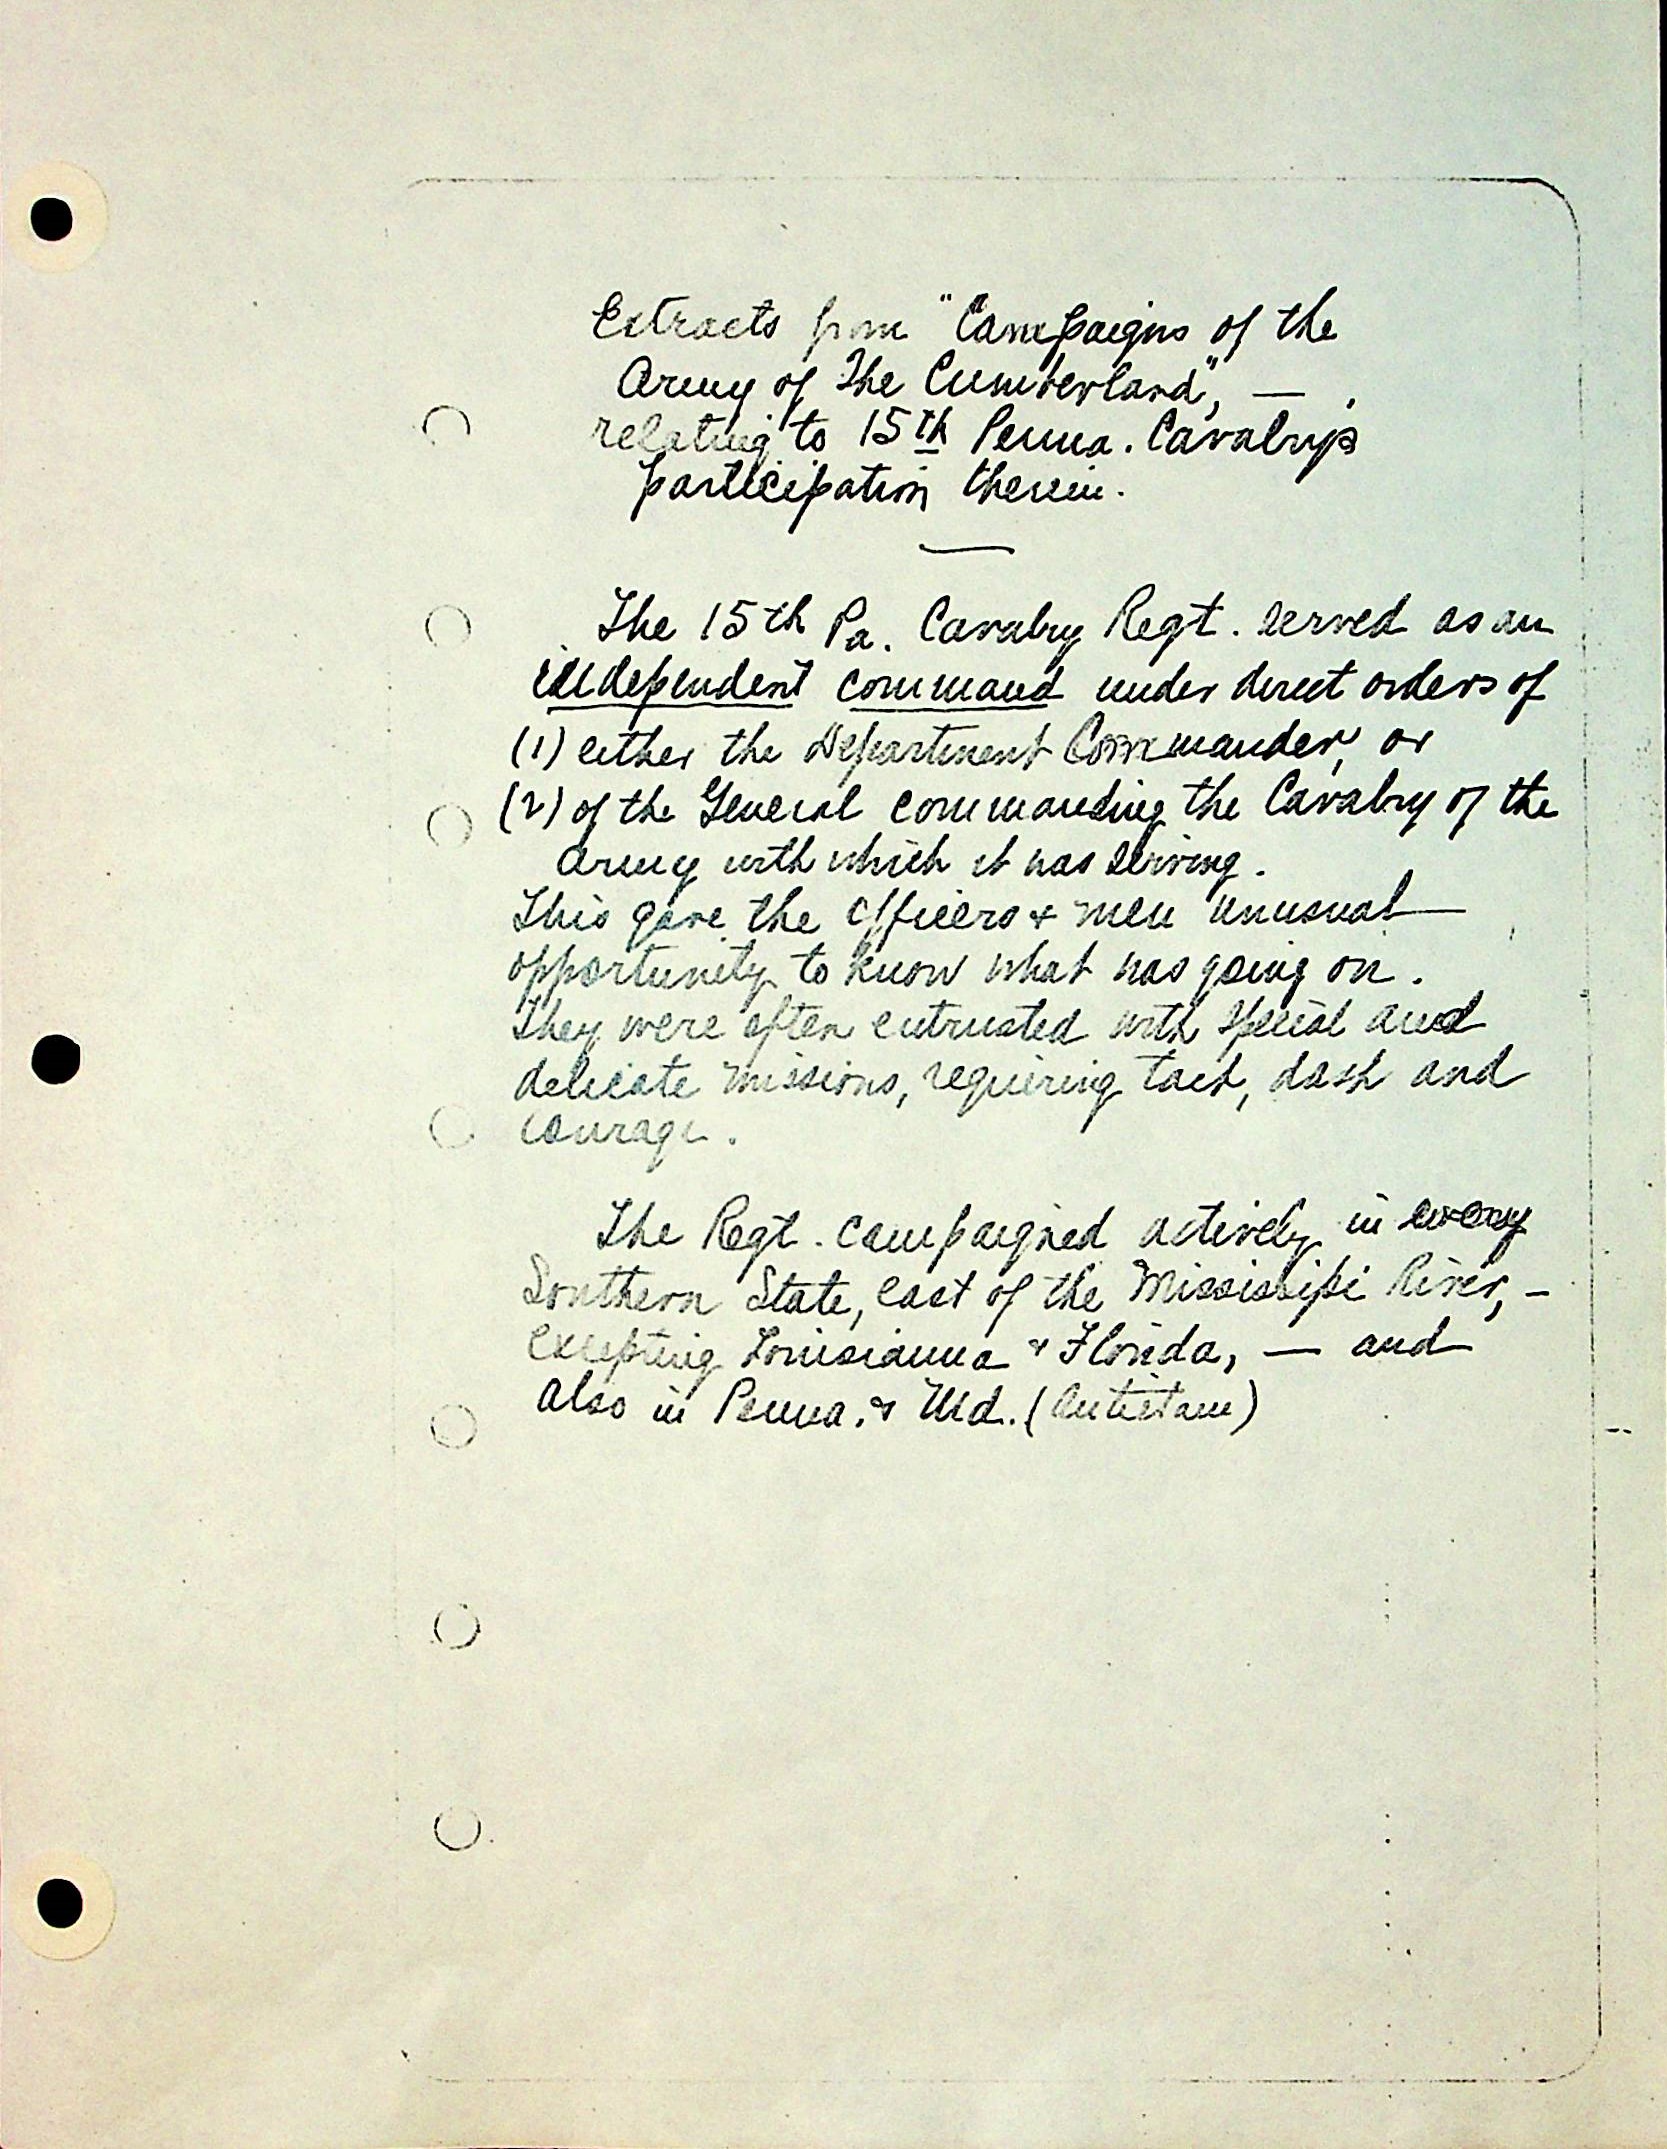 Extracts from "Campaigns of the
Army of The Cumberland", —
relating to 15th Penna. Cavalrys
participation therein.
The 15th Pa. Cavalry Regt. served as an
independent command under direct orders of
(1) either the Department Commander, or
(2) of the General commanding the Cavalry of the
Army with which it was serving.
This gave the officers & men unusual
opportunity to know what was going on.
They were often entrusted with special and
delicate missions, requiring tact, dash and
courage.
The Regt. campaigned actively in every
Southern State, east of the Mississippi River, -
excepting Louisianna & Florida, — and
also in Penna. & Md. (Antietam)